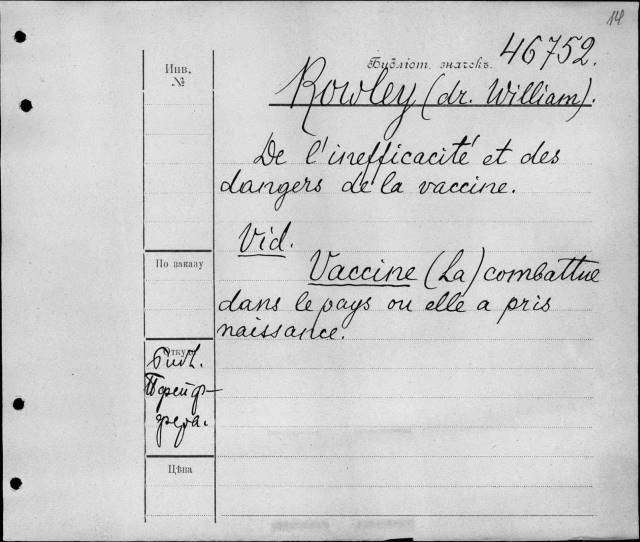 14
46752.
Библіот. значекъ.
Rowley (dr. William).
De l'inefficacité et des
dangers de la vaccine.
Vid.
Vaccine (La) combattue
dans le pays ou elle a pris
naissance.
Инв.
№
По заказу
Откуда
Библ.
Пфейф-
фера.
Цѣна